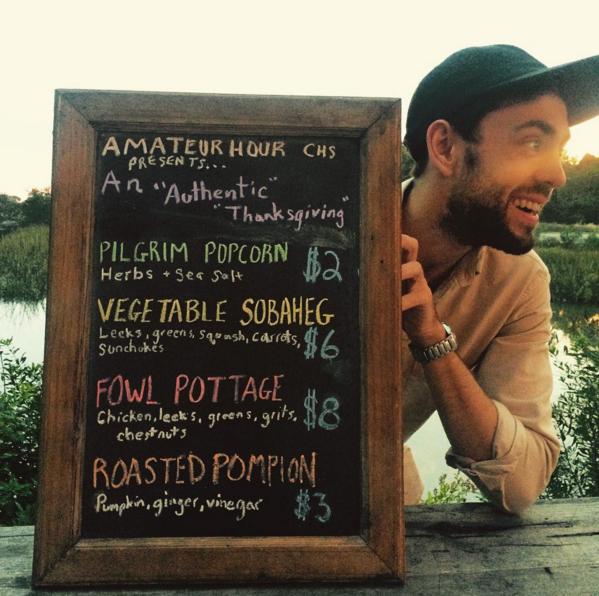 AMATEUR HOUR CHS
PRESENTS...
An "Authentic"
"Thanksgiving"
PILGRIM POPCORN
Herbs + Sea Salt $2
VEGETABLE SOBAHEG
Leeks, greens, squash, carrots,
Sunchokes $6
FOWL POTTAGE
Chicken, leeks, greens, grits, $8
chestnuts
ROASTED POMPION
Pumpkin, ginger, vinegar $3